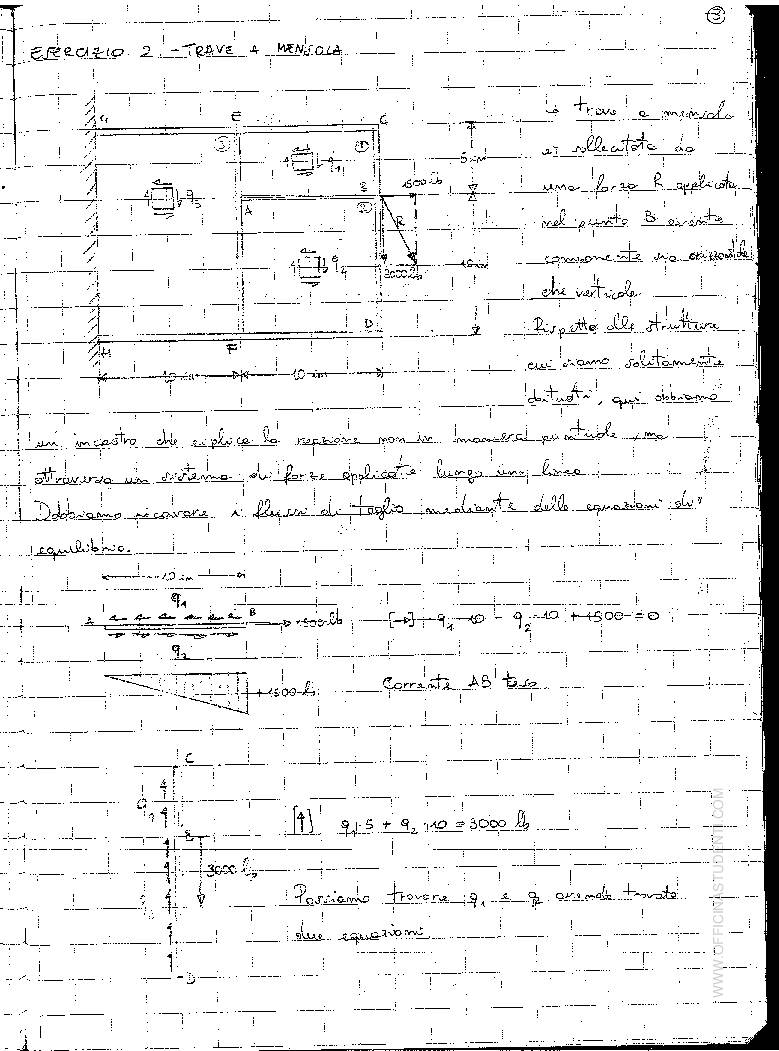 3
ESERCIZIO 2 - TRAVE A MENSOLA
G E C
3 1
q1
5 in
B 1500 lb
q3
A 2
R
q2
3000 lb
10 in
D
H F
10 in 10 in
La trave a mensola
è sollecitata da
una forza R applicata
nel punto B avente
componente sia orizzontale
che verticale.
Rispetto alle strutture
cui siamo solitamente
abituati, qui abbiamo
un incastro che esplica la reazione non in maniera puntuale, ma
attraverso un sistema di forze applicate lungo una linea.
Dobbiamo ricavare i flussi di taglio mediante delle equazioni di
equilibrio.
10 in
q1
A B 1500 lb [→] - q1 10 - q2 10 + 1500 = 0
q2
+1500 lb Corrente AB teso
C
q1
[↑] q1 5 + q2 10 = 3000 lb
B
3000 lb
Possiamo trovare q1 e q2 avendo trovato
due equazioni
D
WWW.OFFICINASTUDENTI.COM